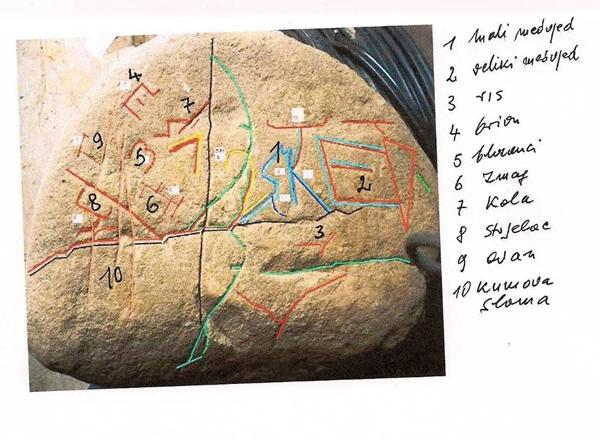 4
7
9
5
1
2
8
6
3
10
1 mali medvjed
2 veliki medvjed
3 ris
4 orion
5 blizanci
6 Zmaj
7 Kola
8 Strjelac
9 ovan
10 Kumova
Slama